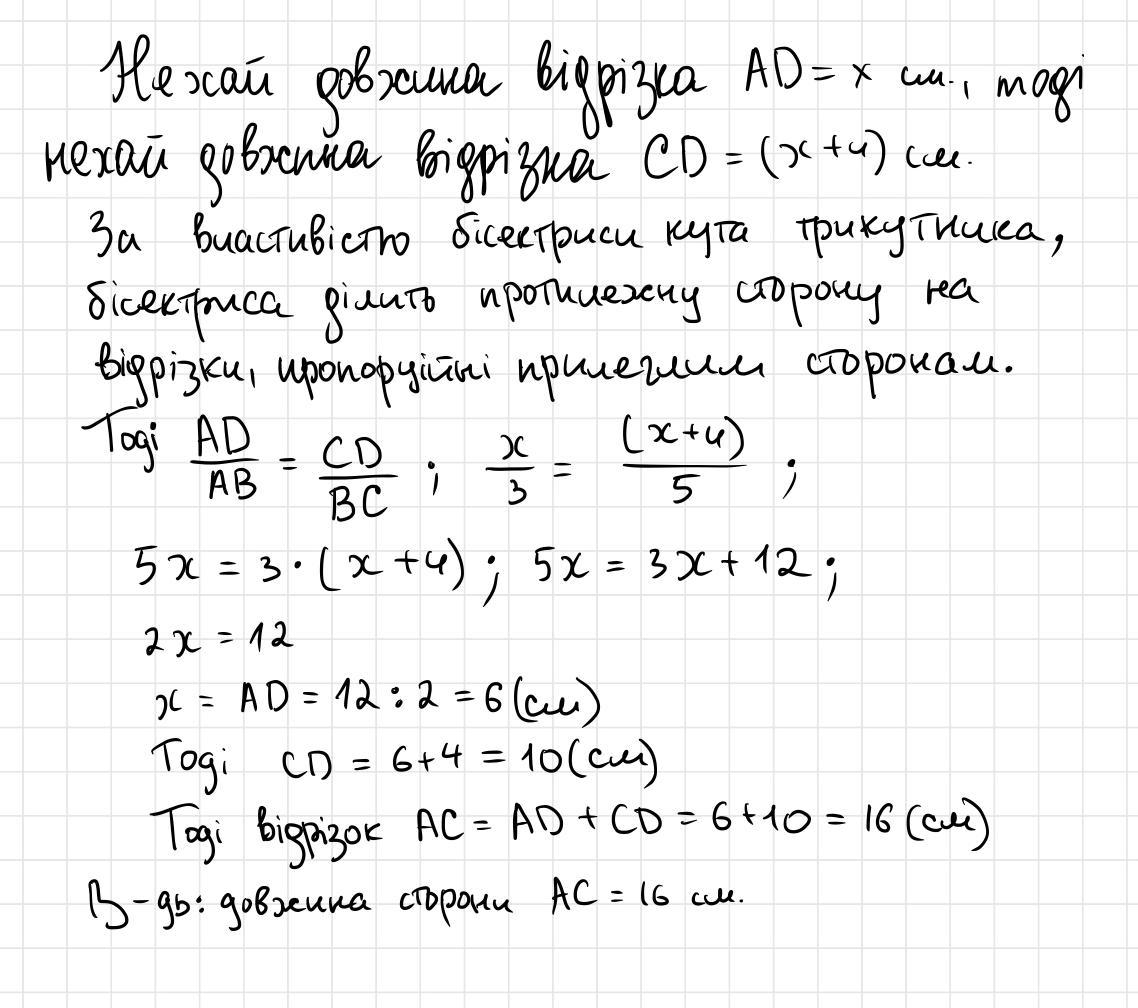 Нехай довжина відрізка AD = x см., тоді
нехай довжина відрізка CD = (x+4) см.
За властивістю бісектриси кута трикутника,
бісектриса ділить протилежну сторону на
відрізки, пропорційні прилеглим сторонам.
Тоді AD/AB = CD/BC ; x/3 = (x+4)/5 ;
5x = 3·(x+4); 5x = 3x+12;
2x = 12
x = AD = 12 : 2 = 6 (см)
Тоді CD = 6+4 = 10 (см)
Тоді відрізок AC = AD + CD = 6+10 = 16 (см)
В-дь: довжина сторони AC = 16 см.